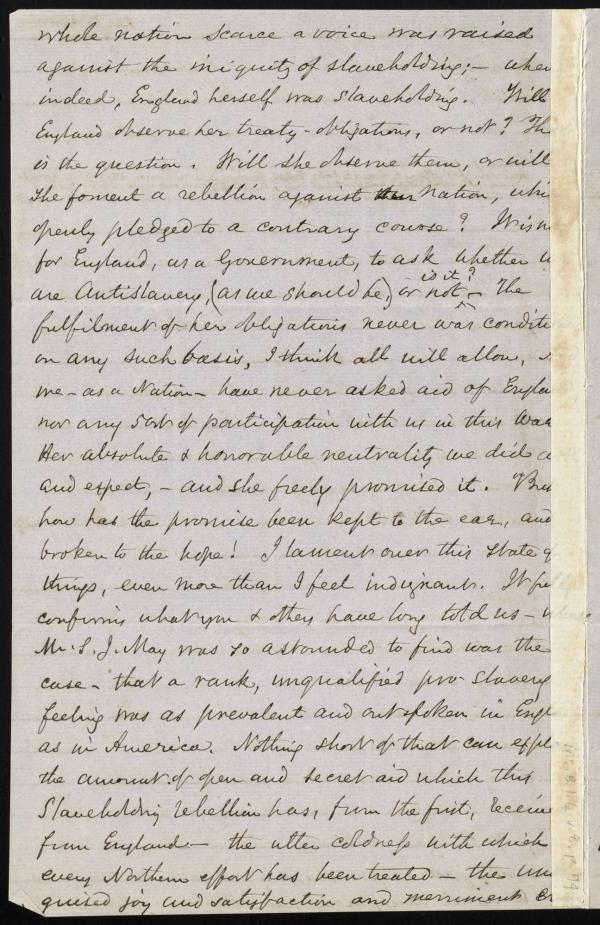 whole nation scarce a voice was raised
against the iniquity of slaveholding; – when
indeed, England herself was slaveholding. Will
England observe her treaty-obligations, or not? Th
is the question. Will she observe them, or will
she foment a rebellion against nation, whi
openly pledged to a contrary course? It is n
for England, as a Government, to ask whether w
are Antislavery, (as we should be,) or not, is it? – The
fulfilment of her obligations never was conditi
on any such basis, I think all will allow,
we – as a Nation – have never asked aid of Engla
nor any sort of participation with us in this War
Her absolute & honorable neutrality we did a
and expect, – and she freely promised it. But
how has the promise been kept to the ear, and
broken to the hope! I lament over this state o
things, even more than I feel indignant. It fu
confirms what you & others have long told us –
Mr. S. J. May was so astounded to find was the
case – that a rank, unqualified pro-slavery
feeling was as prevalent and outspoken in Engl
as in America. Nothing short of that can expl
the amount of open and secret aid which this
Slaveholding rebellion has, from the first, receive
from England – the utter coldness with which
every Northern effort has been treated – the un
guised joy and satisfaction and merriment